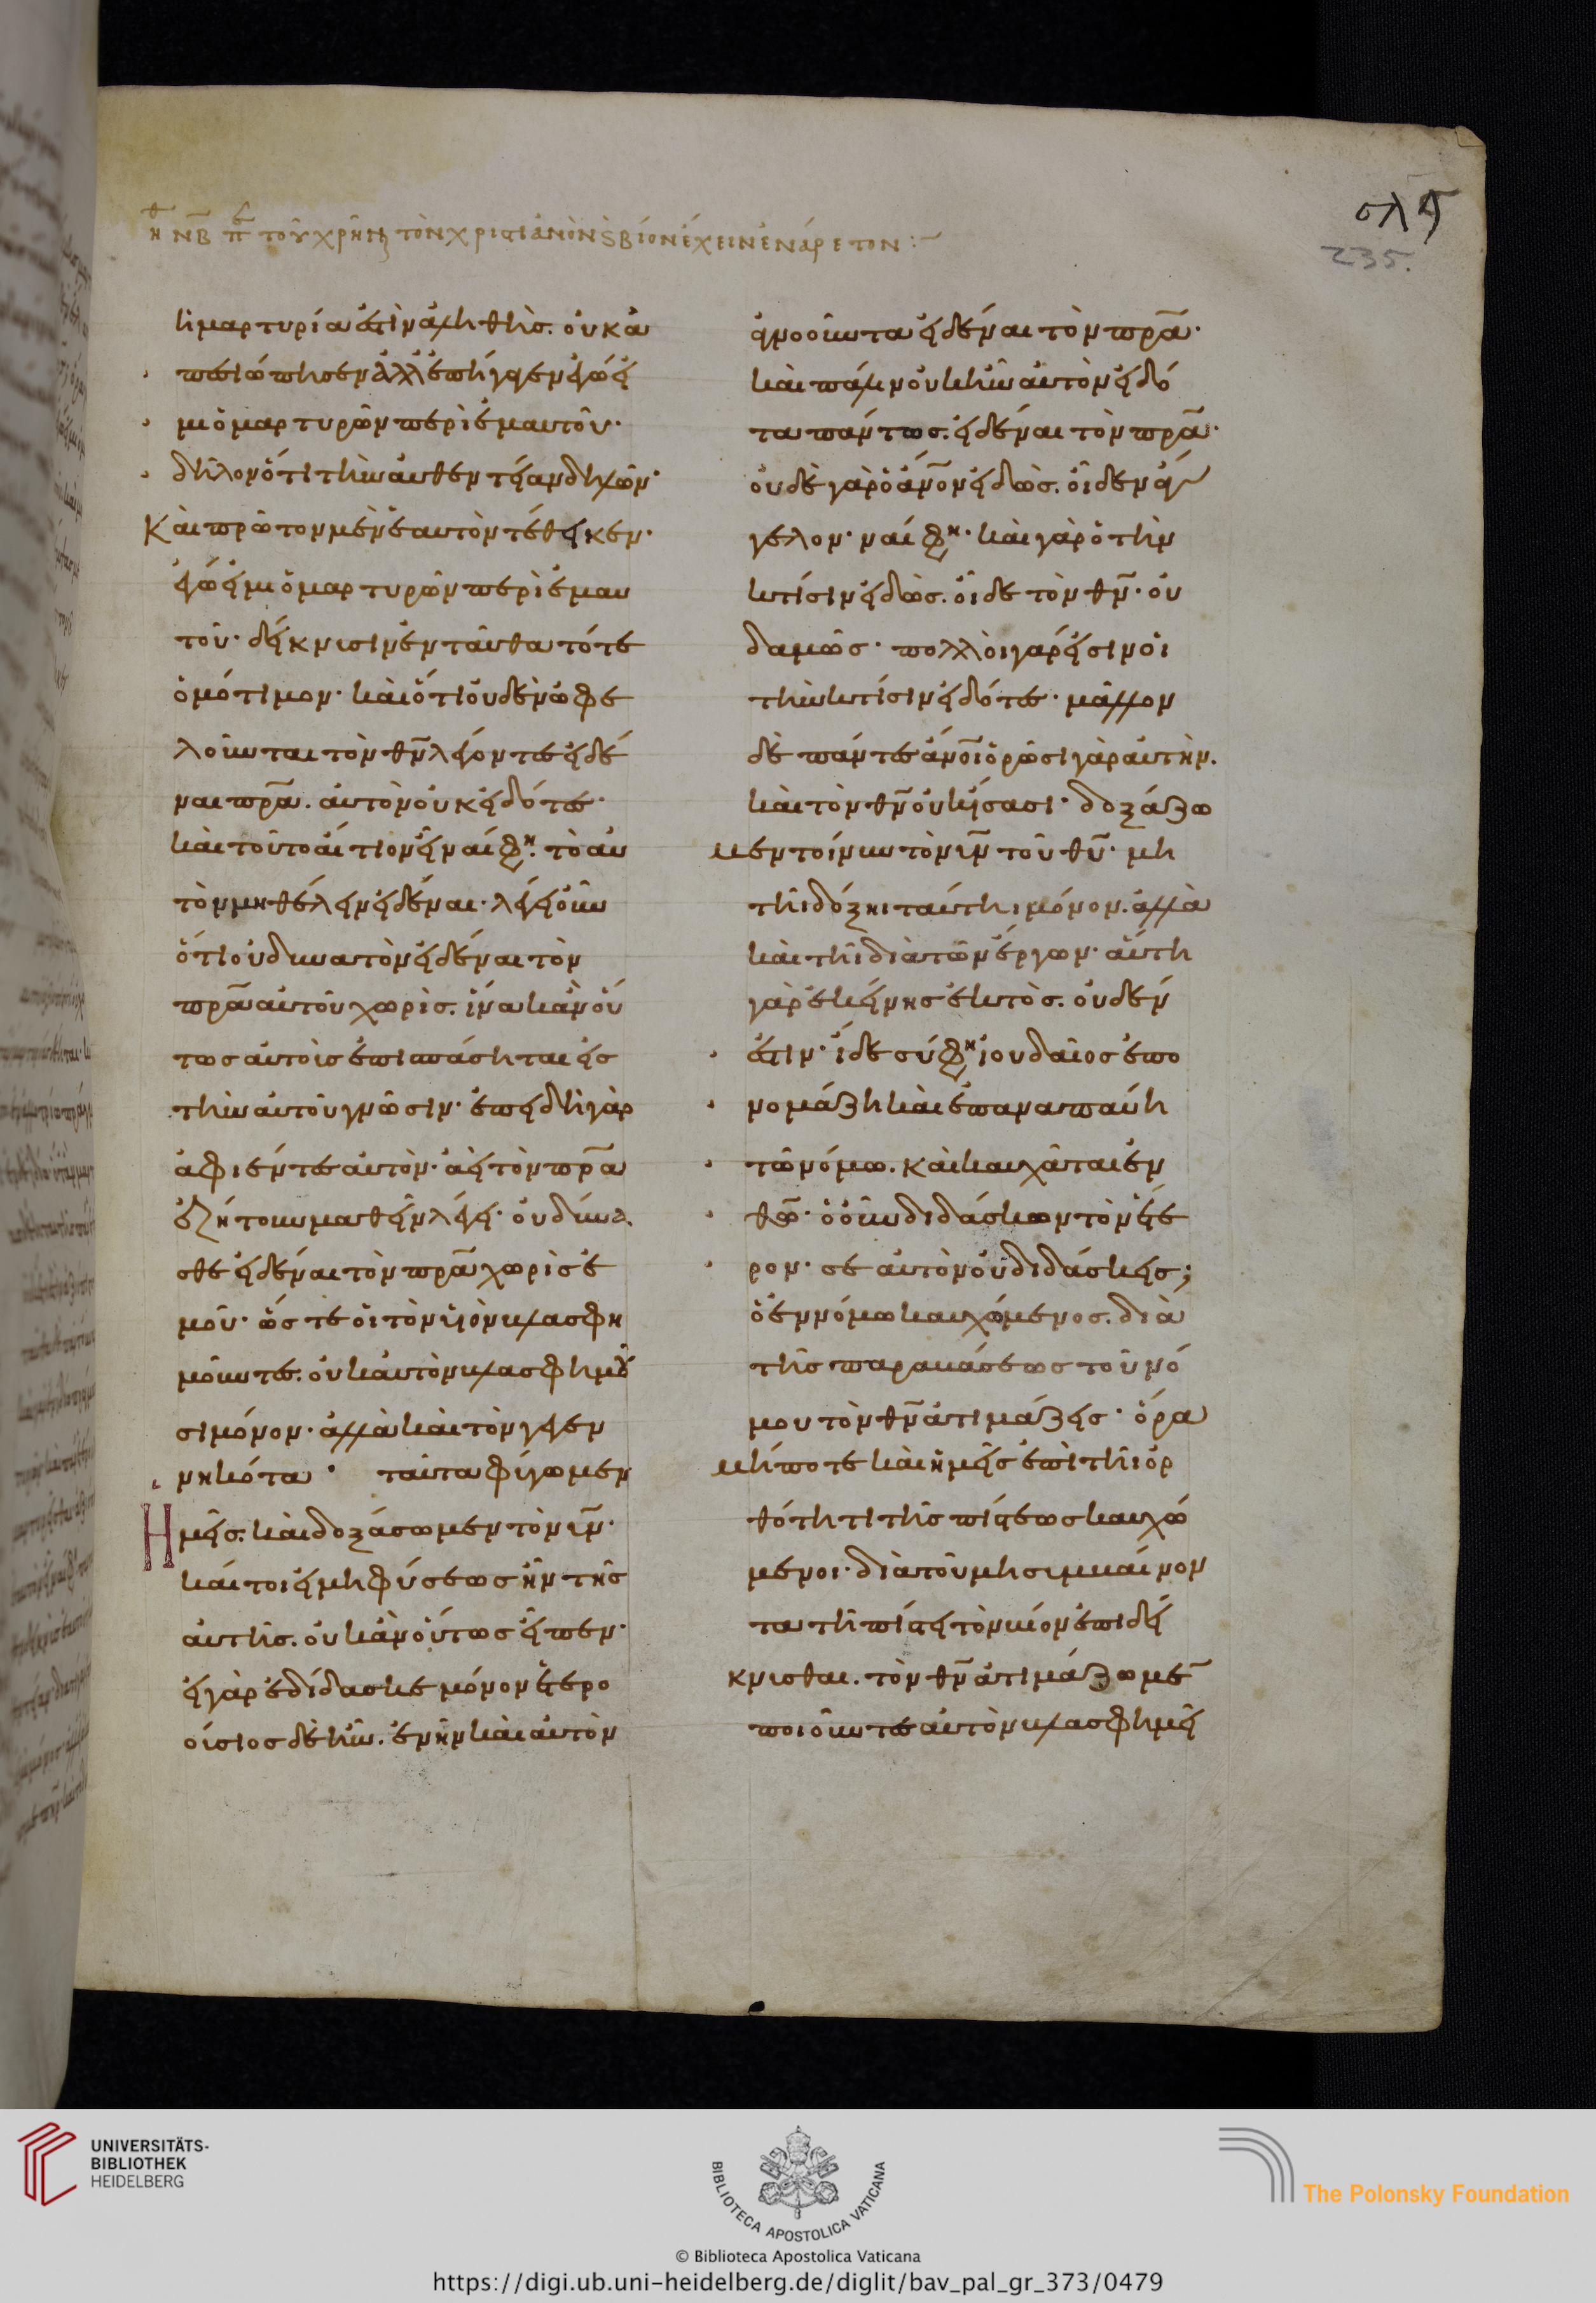 σλϛ
235.
ἠθ ΝΒ π τοῦ χρῆναι τὸν χριστιανὸν ϛ βίον ἔχειν ἐνάρετον :~
ἡ μαρτυρία ἐστὶν ἀληθής. οὐκ ἀ
πεσιώπησεν ἀλλ' ἐπήγαγεν ἐγώ εἰ
μι ὁ μαρτυρῶν περὶ ἐμαυτοῦ·
δῆλον ὅτι τὴν αὐθεντείαν δηλῶν·
Καὶ πρῶτον μὲν ἑαυτὸν τέθεικεν·
ἐγώ εἰμι ὁ μαρτυρῶν περὶ ἐμαυ
τοῦ· δείκνυσιν ἐνταῦθα τό τε
ὁμότιμον· καὶ ὅτι οὐδὲν ὠφε
λοῦνται τὸν θν λέγοντες εἰδέ
ναι πρα. αὐτὸν οὐκ εἰδότες·
καὶ τοῦτο αἴτιον εἶναί φη. τὸ αὐ
τὸν μὴ θέλειν εἰδέναι· λέγει οὖν
ὅτι οὐ δυνατὸν εἰδέναι τὸν
πρα αὐτοῦ χωρίς. ἵνα κἂν οὕ
τως αὐτοὺς ἐπισπάσηται εἰς
τὴν αὐτοῦ γνῶσιν· ἐπειδὴ γὰρ
ἀφιέντες αὐτὸν. ἀεὶ τὸν πρα
ἐζήτουν μαθεῖν λέγει· οὐ δύνα
σθε εἰδέναι τὸν πρα χωρὶς ἐ
μοῦ· ὥστε οἱ τὸν υἱὸν βλασφη
μοῦντες. οὐκ αὐτὸν βλασφημοῦ
σι μόνον· ἀλλὰ καὶ τὸν γεγεν
νηκότα· ταῦτα φύγωμεν
Ἡμεῖς. καὶ δοξάσωμεν τὸν υν·
καίτοι εἰ μὴ φύσεως ἦν τῆς
αὐτῆς. οὐκ ἂν οὕτως εἶπεν·
εἰ γὰρ ἐδίδασκε μόνον ἑτερο
ούσιος δὲ ἦν. ἐνῆν καὶ αὐτὸν
ἀγνοοῦντα εἰδέναι τὸν πρα·
καὶ πάλιν οὐκ ἦν αὐτὸν εἰδό
τα πάντως. εἰδέναι τὸν πρα·
οὐδὲ γὰρ ὁ ἀνον εἰδὼς. οἶδεν ἄγ
γελον· ναί φη· καὶ γὰρ ὁ τὴν
κτίσιν εἰδὼς. οἶδε τὸν θν· οὐ
δαμῶς· πολλοὶ γάρ εἰσιν οἱ
τὴν κτίσιν εἰδότες· μᾶλλον
δὲ πάντες ἀνοι ὁρῶσι γὰρ αὐτήν.
καὶ τὸν θν οὐκ ἴσασι· δοξάζω
μεν τοίνυν τὸν υν τοῦ θυ· μὴ
τῆι δόξηι ταύτηι μόνον. ἀλλὰ
καὶ τῆι διὰ τῶν ἔργων· αὕτη
γὰρ ἐκείνης ἐκτὸς. οὐδέν
ἐστιν· ἴδε σύ φη ἰουδαῖος ἐπο
νομάζη καὶ ἐπαναπαύη
τῶ νόμω. καὶ καυχᾶσαι ἐν
θω· ὁ οὖν διδάσκων τὸν ἕτε
ρον· σεαυτὸν οὐ διδάσκεις;
ὁ ἐν νόμω καυχώμενος. διὰ
τῆς παραβάσεως τοῦ νό
μου τὸν θν ἀτιμάζεις· ὅρα
μήποτε καὶ ἡμεῖς ἐπὶ τῆι ὀρ
θότητι τῆς πίστεως καυχώ
μενοι· διὰ τοῦ μὴ συμβαίνον
τα τῆ πίστει τὸν βίον ἐπιδεί
κνυσθαι. τὸν θν ἀτιμάζωμε
ποιοῦντες αὐτὸν βλασφημεῖ
UNIVERSITÄTS-
BIBLIOTHEK
HEIDELBERG
BIBLIOTECA APOSTOLICA VATICANA
The Polonsky Foundation
© Biblioteca Apostolica Vaticana
https://digi.ub.uni-heidelberg.de/diglit/bav_pal_gr_373/0479